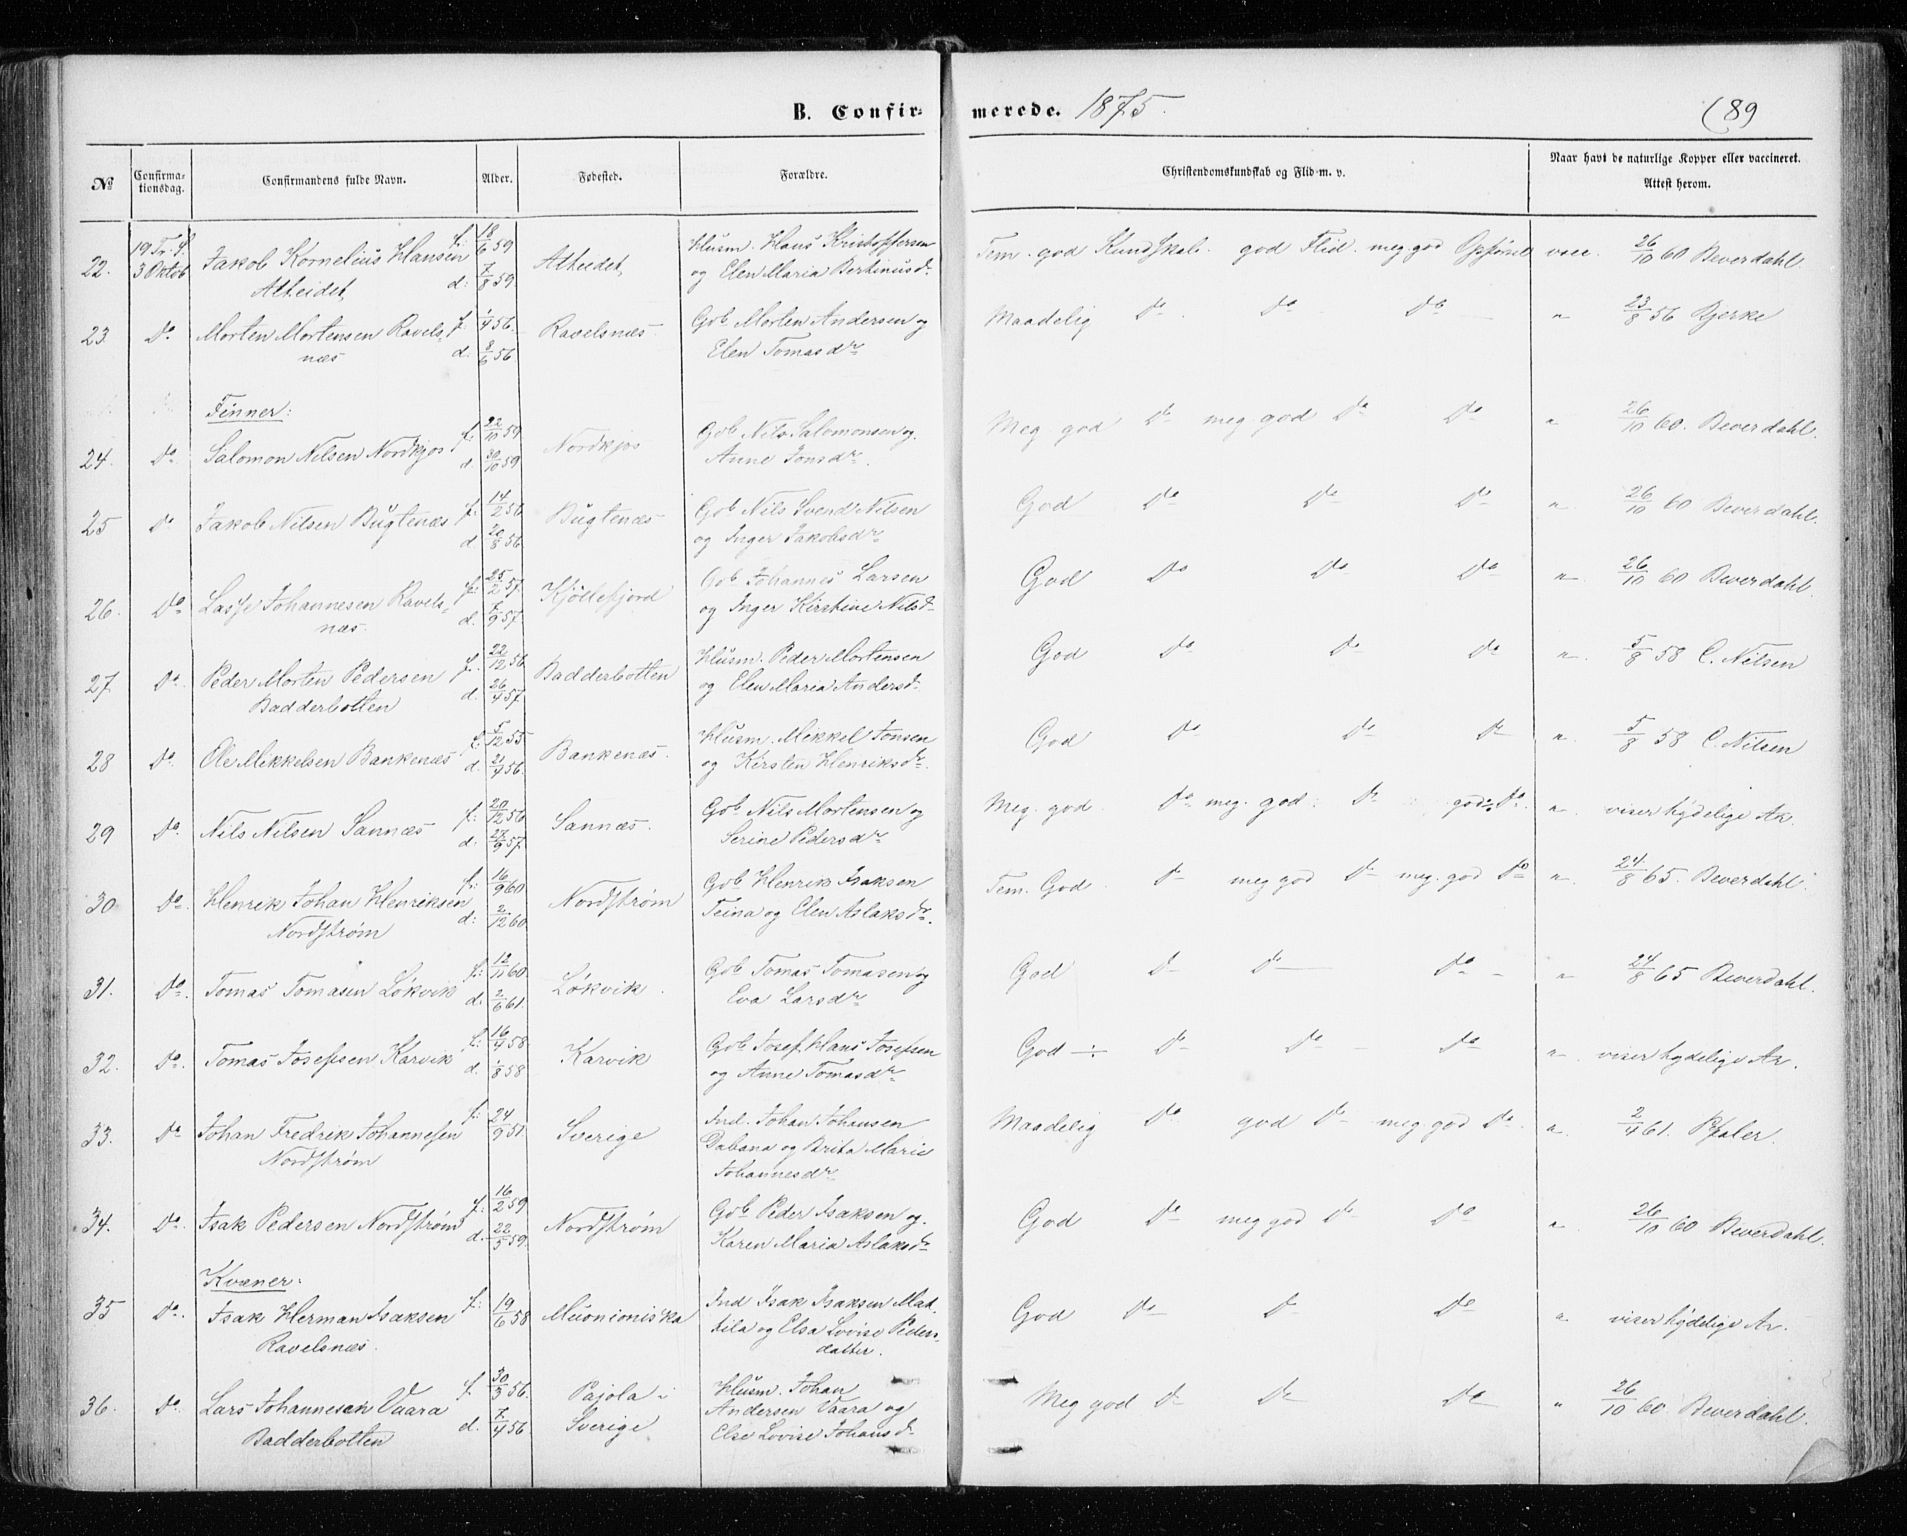 B. Confir-
merede. 1875.
(89
№
Confirma-
tionsdag.
Confirmandens fulde Navn.
Alder.
Fødested.
Forældre.
Christendomskundskab og Flid m. v.
Naar havt de naturlige Kopper eller vaccineret.
Attest herom.
22.
19 Tr. S.
3 Octob
Jakob Kornelius Hansen
Alteidet,
f: 18/6 59
d: 7/8 59
Alteidet,
Husm. Hans Kristoffersen
og Elen Maria Bertinusd.
Tem. god Kundskab. god Flid. meg. god Opførsel
vacc. 26/10 60 Beverdahl.
23
Do.
Morten Mortensen Ravels-
næs
f. 1/4 56.
d. 8/6 56
Ravelsnæs.
Gdb Morten Andersen og
Elen Tomasdr
Maadelig Do. Do Do
" 23/8 56 Bjerke
Finner:
24.
Do.
Salomon Nilsen Nordkjos
f. 22/10 59
d. 30/10 59
Nordkjos
Gdb Nils Salomonsen og.
Anne Jonsdr.
Meg. god Do meg god Do Do
" 26/10 60. Beverdahl.
25
Do
Jakob Nilsen Bugtenæs
f. 14/2 56
d. 20/8 56
Bugtenæs
Gdb Nils Svend Nilsen
og Inger Jakobsdr
God Do Do Do
" 26/10 60 Beverdahl.
26.
Do
Lasse Johannesen Ravels-
næs.
f. 25/2 57.
d. 7/9 57.
Kjöllefjord
Gdb Johannes Larsen
og Inger Kirstine Nilsd.
God Do Do Do
" 26/10 60 Beverdahl.
27
Do.
Peder Morten Pedersen
Badderbotten
f. 22/12 56.
d. 26/4 57.
Badderbotten
Husm. Peder Mortensen
og Elen Maria Andersd.
God Do Do Do
" 5/8 58 C. Nilsen
28
Do.
Ole Mikkelsen Bankenæs
f. 5/12 55
d. 21/4 56.
Bankenæs.
Husm. Mikkel Jonsen
og Kirsten Henriksdr.
God Do Do Do
" 5/8 58 C. Nilsen
29
Do.
Nils Nilsen Sannæs
f. 20/12 56
d. 27/9 57.
Sannæs.
Gdb Nils Mortensen og
Serine Pedersdr
Meg. god. Do meg. god Do god Do
" viser tydelige Ar.
30
Do.
Henrik Johan Henriksen
Nordstrøm
f: 16/9 60
d: 2/12 60
Nordstrøm
Gdb Henrik Isaksen
Teina og Elen Aslaksdr.
Tem. God Do meg god Do meg. god Do
" 24/8 65. Beverdahl.
31.
Do.
Tomas Tomasen Løkvik
f: 12/11 60
d. 2/6 61.
Løkvik.
Gdb Tomas Tomasen og
Eva Larsdr
God Do Do Do
" 24/8 65 Beverdahl.
32.
Do.
Tomas Josefsen Karvik
f. 16/4 58
d. 1/8 58
Karvik
Gdb Josef Hans Josefsen
og Anne Tomasdr
God -:- Do Do Do
" viser tydelige Ar.
33.
Do
Johan Fredrik Johannesen
Nordstrøm
f: 24/9 57.
Sverige
Ind. Johan Johansen
Dabana og Brita Marie
Johannesdr
Maadelig Do god Do meg. god Do.
" 2/4 61. Pfaler.
34.
Do.
Isak Pedersen Nordstrøm
f: 16/2 59
d. 22/5 59.
Nordstrøm
Gdb Peder Isaksen og.
Karen Maria Aslaksdr
God Do meg god Do Do
" 26/10 60 Beverdahl.
Kvæner.
35
Do.
Isak Herman Isaksen
Ravelsnæs.
f: 19/6 58
Muonioniska
Ind Isak Isaksen Mat-
tila og Elsa Lovise Peders-
datter.
God Do Do Do
" viser tydelige Ar.
36.
Do.
Lars Johannesen Vaara
Badderbotten
f. 30/3 56.
d. 7/4 56
Pajola i
Sverige
Husm. Johan
Andersen Vaara og
Else Lovise Johansd.
Meg god Do Do Do
" 26/10 60. Beverdahl.